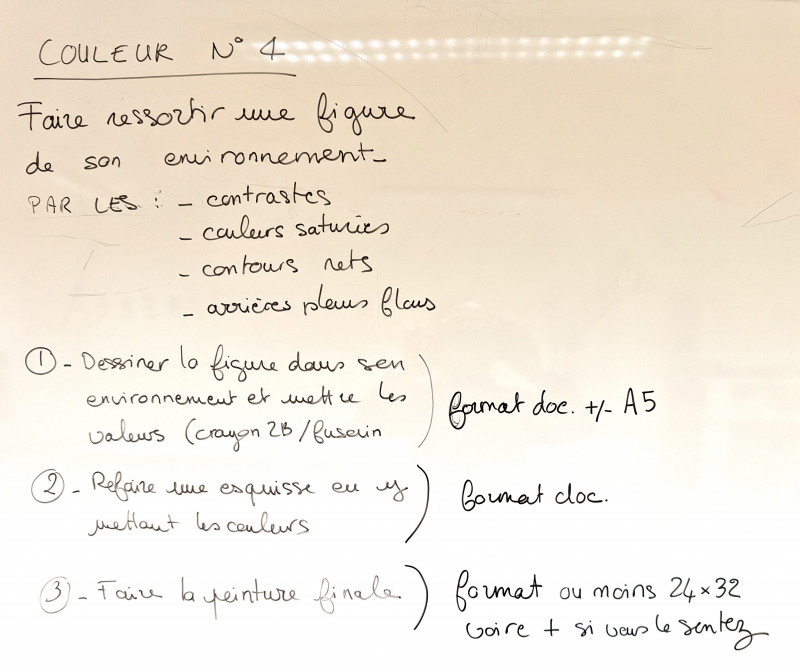 COULEUR N° 4
Faire ressortir une figure
de son environnement_
PAR LES : - contrastes
- couleurs saturées
- contours nets
- arrières plans flous
① - Dessiner la figure dans son
environnement et mettre les
valeurs (crayon 2B / fusain
format doc. +/- A5
② - Refaire une esquisse en y
mettant les couleurs
format doc.
③ - Faire la peinture finale
format ou moins 24 × 32
voire + si vous le sentez